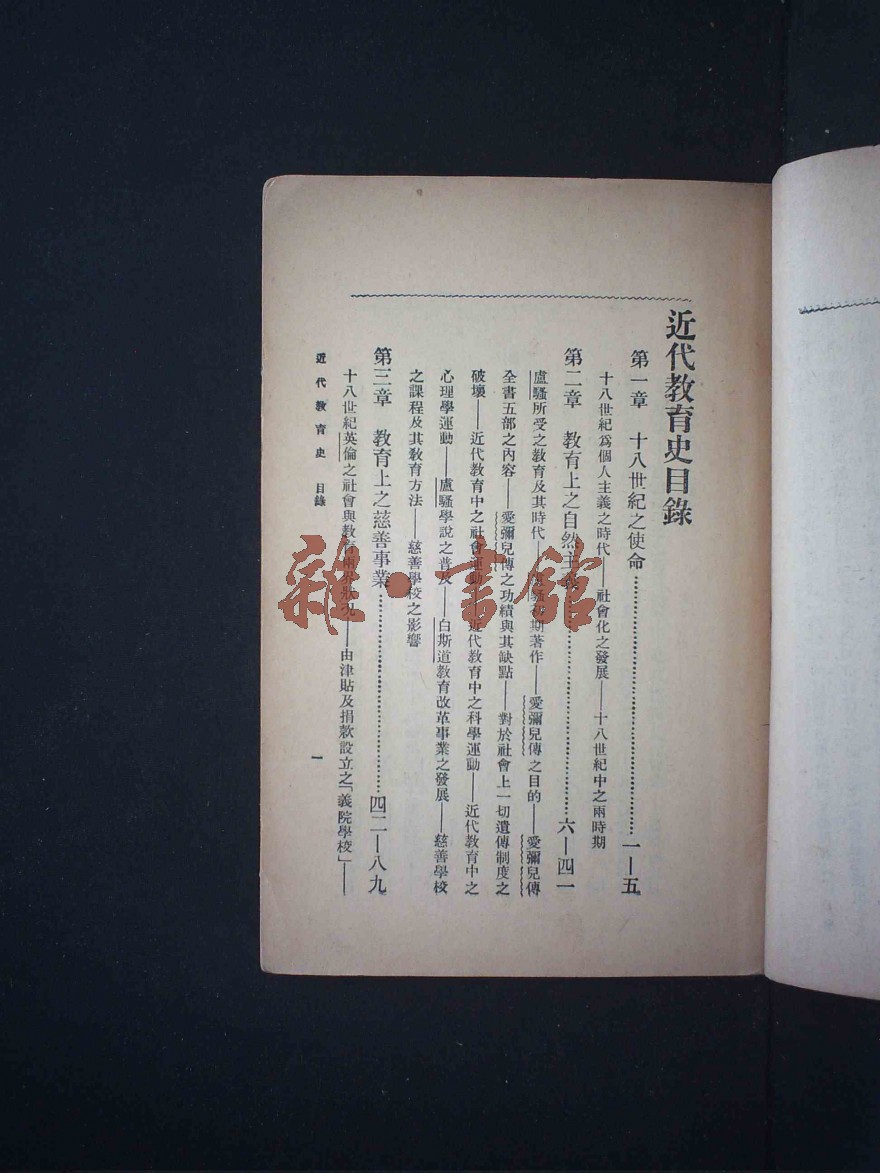 近代教育史目錄
第一章　十八世紀之使命…………一—五
十八世紀爲個人主義之時代——社會化之發展——十八世紀中之兩時期
第二章　教育上之自然主義…………六—四一
盧騷所受之教育及其時代——盧騷初期著作——愛彌兒傳之目的——愛彌兒傳
全書五部之內容——愛彌兒傳之功績與其缺點——對於社會上一切遺傳制度之
破壞——近代教育中之社會運動——近代教育中之科學運動——近代教育中之
心理學運動——盧騷學說之普及——白斯道教育改革事業之發展——慈善學校
之課程及其教育方法——慈善學校之影響
第三章　教育上之慈善事業…………四二—八九
十八世紀英倫之社會與教育兩界狀況——由津貼及捐款設立之「義院學校」——
近代教育史　目錄
一
雜·書館